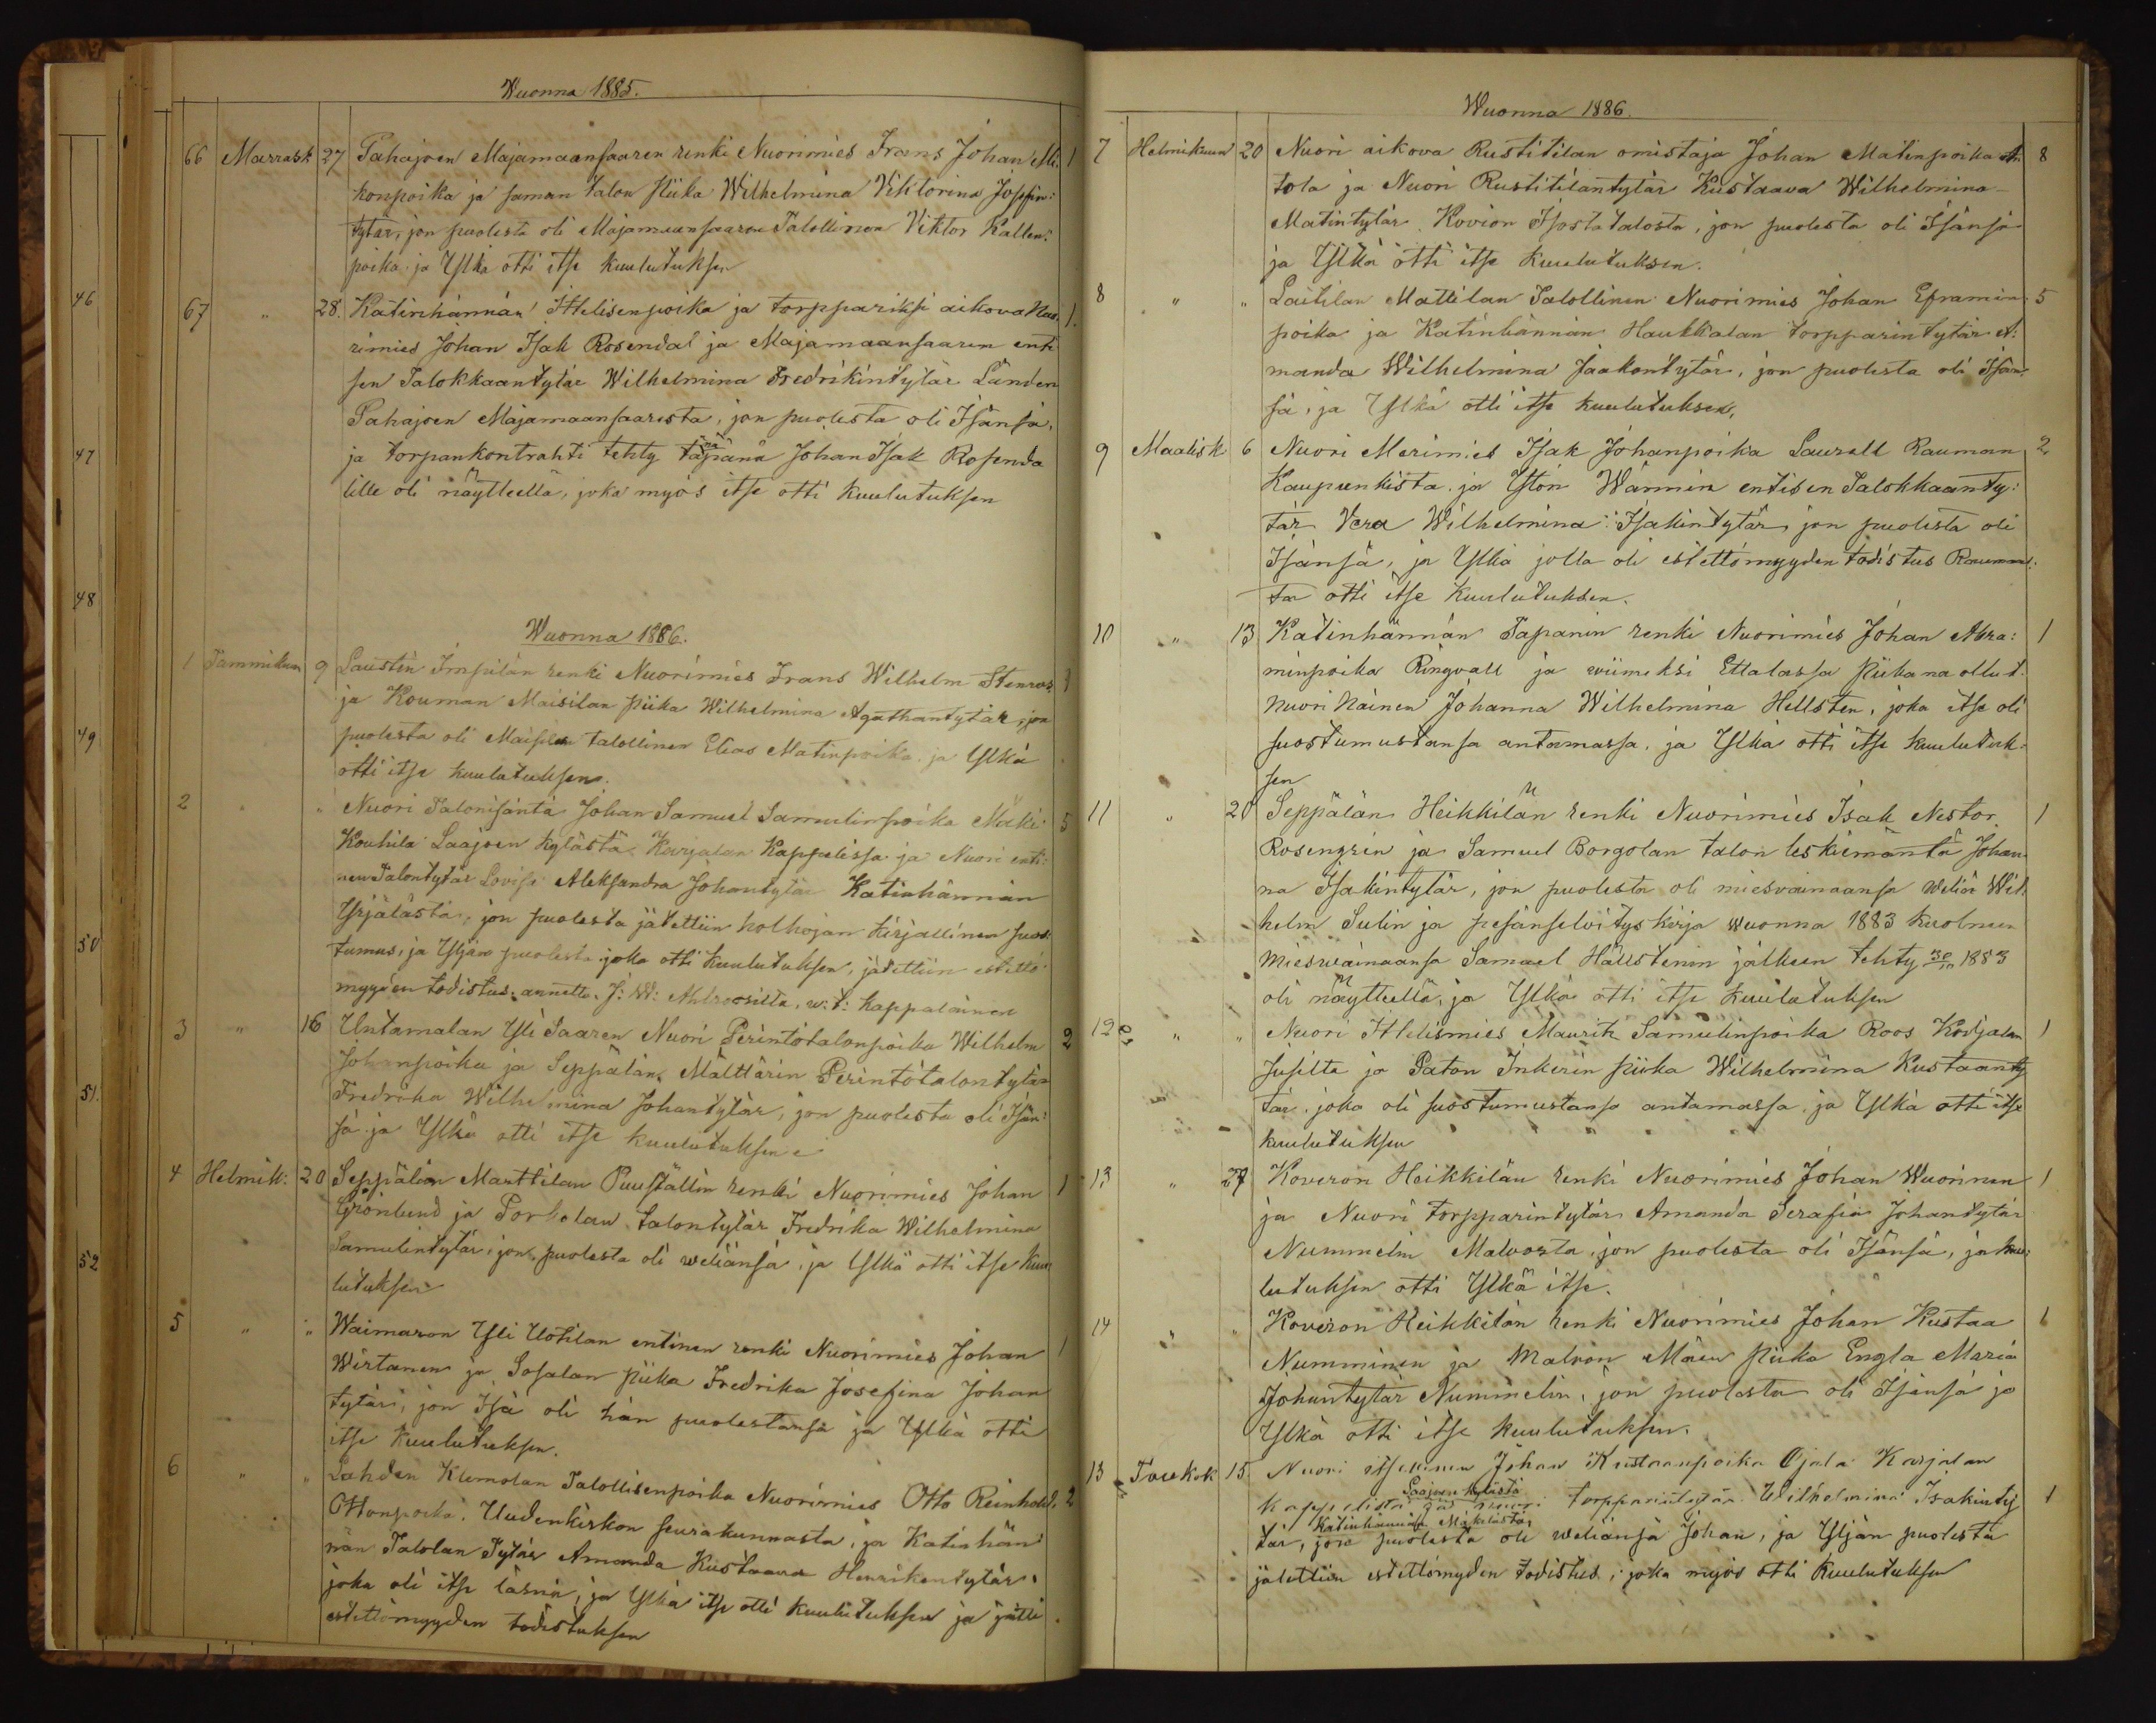 Wuonna 1885.
66 Marrask 27 Pahajoen Majamaansaaren renki Nuorimies Frans Johan Mi: 1
konpoika ja saman talon Piika Wilhelmina Viktorina Josefin:
tytär, jon puolesta oli Majamaansaaren Talollinen Viktor Kallen:
poika ja Ylkä otti itse kuulutuksen
67 " 28. Katinhännän Ittelisenpoika ja torppariksi aikova Nuo: 1.
rimies Johan Isak Rosendal ja Majamaansaaren enti
sen Talokkaantytär Wilhelmina Fredrikintytär Landen
Pahajoen Majamaansaaresta, jon puolesta oli Isänsä,
ja torpankontrahti tehty tänäpänä Johan Isak Rosenda
lille oli näytteellä, joka myös itse otti kuulutuksen
46
47
48
49
50
51.
52
Wuonna 1886.
1 Tammikuun 9 Laustin Impilän renki Nuorimies Frans Wilhelm Stenroos 1
ja Kouman Maisilan piika Wilhelmina Agathantytär, jon
puolesta oli Maisilan talollinen Elias Matinpoika ja Ylkä
otti itse kuulutuksen.
2 " " Nuori Talonisäntä Johan Samuel Samulinpoika Mäki 5
Kouhila Laajoen kylästä Karjalan Kappelissa ja Nuori enti:
nen Talontytär Lovisa Aleksandra Johantytär Katinhännän
Yrjälästä, jon puolesta jätettiin holhojan kirjallinen suos:
tumus, ja Yljän puolesta joka otti kuulutuksen, jätettiin estettö
myyden todistus, annettu J: W: Ahlroosilta, w: t: kappalainen
3 " 16 Untamalan Yli Saaren Nuori Perintötalonpoika Wilhelm 2
Johanpoika ja Seppälän Mälttärin Perintötalontytär
Fredrika Wilhelmina Johantytär, jon puolesta oli Isän:
sä ja Ylkä otti itse kuulutuksen
4 Helmik: 20 Seppälän Marttilan Puuställin renki Nuorimies Johan 1
Grönlund ja Porkolan talontytär Fredrika Wilhelmina
Samulintytär, jon puolesta oli weljänsä, ja Ylkä otti itse kuu
lutuksen
5 " " Waimaron Yli Uotilan entinen renki Nuorimies Johan 1
Wirtanen ja Sosalan piika Fredrika Josefina Johan
tytär, jon Isä oli hän puolestansa ja Ylkä otti
itse kuulutuksen.
6 " " Lahden Klemolan Talollisenpoika Nuorimies Otto Reinhold 2
Ottonpoika Uudenkirkon seurakunnasta, ja Katinhän
nän Talolan Tytär Amanda Kustaava Henrikentytär,
joka oli itse läsnä, ja Ylkä itse otti kuulutuksen ja jätti
estettömyyden todistuksen
Wuonna 1886.
7 Helmikuun 20 Nuori aikova Rustitilan omistaja Johan Matinpoika 8
tola ja Nuori Rustitilantytär Kustaava Wilhelmina
Matintytär Kovion Isosta talosta, jon puolesta oli Isänsä
ja Ylkä otti itse kuulutuksen.
8 " " Laitilan Mattilan Talollinen Nuorimies Johan Eframin: 5
poika ja Katinhännän Haukkalan torpparintytär A:
manda Wilhelmina Jaakontytär, jon puolesta oli Isän
sä, ja Ylkä otti itse kuulutuksen,
9 Maalisk 6 Nuori Merimies Isak Johanpoika Laurell Rauman 2
Kaupunkista ja Ylön Wännin entisen Talokkaanty:
tär Vera Wilhelmina Isakintytär jon puolesta oli
Isänsä, ja Ylkä jolla oli estettömyyden todistus Raumal:
ta otti itse kuulutuksen.
10 " 13 Katinhännän Tapanin renki Nuorimies Johan Abra: 1
minpoika Ringvall ja wiimeksi Ettalassa Piikana ollut
Nuori Nainen Johanna Wilhelmina Hellsten, joka itse oli
suostumustansa antamassa, ja Ylkä otti itse kuulutuk:
sen
11 " 20 Seppälän Heikkilän renki Nuorimies Isak Nestor 1
Rosengrén ja Samuel Borgolan talon leskiemäntä Johan
na Isakintytär, jon puolesta oli miesvainaansa weljä Wil
helm Sulin ja pesänselvityskirja wuonna 1883 kuolneen
mieswainaansa Samuel Hällstenin jälkeen tehty 30/10 1883
oli näytteellä, ja Ylkä otti itse kuulutuksen
12 " " Nuori Ittelismies Maurits Samulinpoika Roos Kodjalan 1
Jusilta ja Paton Inkerin piika Wilhelmina Kustaanty
tär, joka oli suostumustansa antamassa, ja Ylkä otti itse
kuulutuksen
13 " 27 Koveron Heikkilän renki Nuorimies Johan Wuorinen 1
ja Nuori torpparintytär Amanda Serafia Johantytär
Nummelin Malvosta, jon puolesta oli Isänsä, ja kuu:
lutuksen otti Ylkä itse.
14 " " Koveron Heikkilän renki Nuorimies Johan Kustaa 1
Numminen ja Malvon Mäen piika Engla Maria
Johantytär Nummelin, jon puolesta oli Isänsä ja
Ylkä otti itse kuulutuksen.
15 Toukok 15 Nuori itsellinen Johan Kustaanpoika Ojala Karjalan
Laajoen kylästä
kappelista ja nuori torpparintytär Wilhelmina Isakinty 1
Katinhännän Mäkelästä,
tär, jon puolesta oli weljänsä Johan, ja Yljän puolesta
jätettiin estettömyden todistus, joka myös otti kuulutuksen